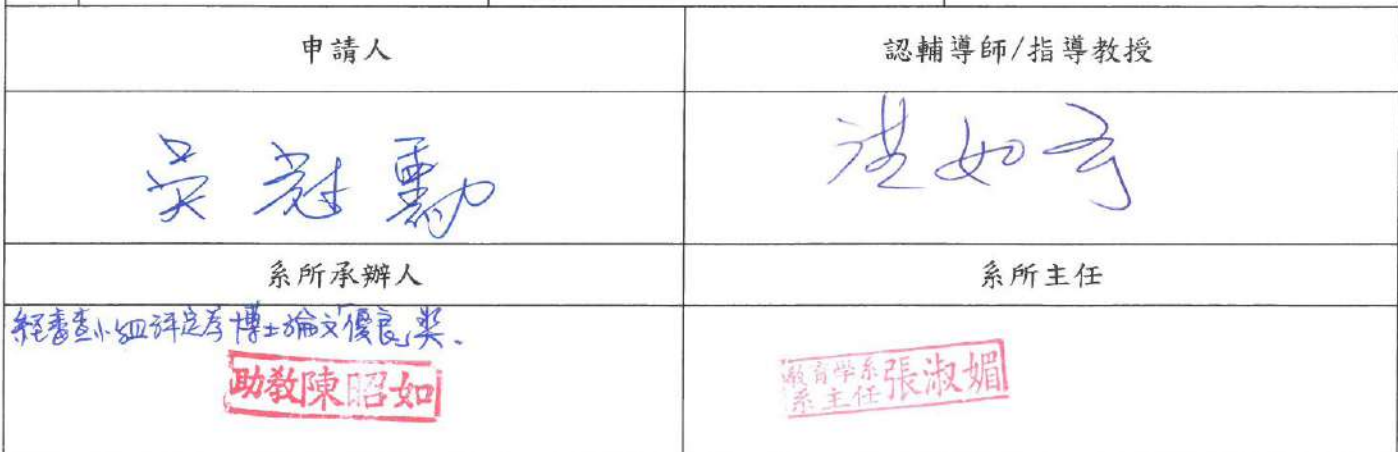 申請人
認輔導師/指導教授
吳冠勳
洪如
系所承辦人
系所主任
經審查小組評定為博士論文「優良」獎.
助教陳昭如
教育學系
系主任張淑媚